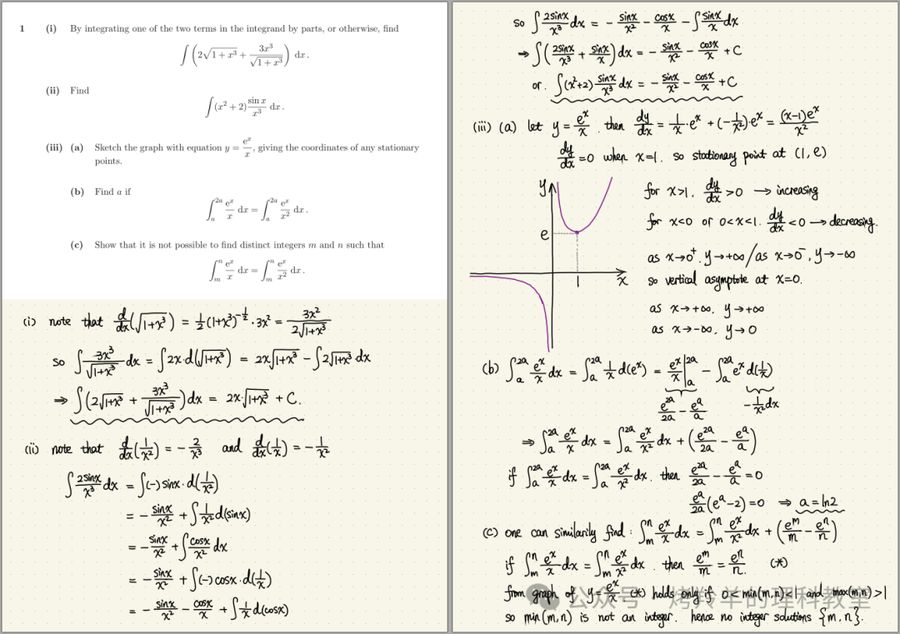 1 (i) By integrating one of the two terms in the integrand by parts, or otherwise, find
∫ (2√(1+x³) + 3x³/√(1+x³)) dx.
(ii) Find
∫ (x²+2) sin x/x³ dx.
(iii) (a) Sketch the graph with equation y = eˣ/x, giving the coordinates of any stationary
points.
(b) Find a if
∫ₐ²ᵃ eˣ/x dx = ∫ₐ²ᵃ eˣ/x² dx.
(c) Show that it is not possible to find distinct integers m and n such that
∫ₘⁿ eˣ/x dx = ∫ₘⁿ eˣ/x² dx.
(i) note that d/dx(√(1+x³)) = ½(1+x³)^(-½)·3x² = 3x²/(2√(1+x³))
so ∫ 3x³/√(1+x³) dx = ∫2x·d(√(1+x³)) = 2x√(1+x³) − ∫2√(1+x³) dx
⇒ ∫(2√(1+x³) + 3x³/√(1+x³))dx = 2x√(1+x³) + C.
(ii) note that d/dx(1/x²) = −2/x³ and d/dx(1/x) = −1/x²
∫ 2sinx/x³ dx = ∫(-) sinx·d(1/x²)
= −sinx/x² + ∫1/x² d(sinx)
= −sinx/x² + ∫cosx/x² dx
= −sinx/x² + ∫(-) cosx·d(1/x)
= −sinx/x² − cosx/x + ∫1/x d(cosx)
so ∫ 2sinx/x³ dx = −sinx/x² − cosx/x − ∫sinx/x dx
⇒ ∫(2sinx/x³ + sinx/x)dx = −sinx/x² − cosx/x + C
or. ∫(x²+2) sinx/x³ dx = −sinx/x² − cosx/x + C
(iii) (a) let y = eˣ/x, then dy/dx = 1/x·eˣ + (−1/x²)·eˣ = (x−1)eˣ/x²
dy/dx = 0 when x=1. so stationary point at (1, e)
y
e
1
x
for x>1, dy/dx > 0 → increasing
for x<0 or 0<x<1. dy/dx < 0 → decreasing.
as x→0⁺, y→+∞ / as x→0⁻, y→−∞
so vertical asymptote at x=0.
as x→+∞, y→+∞
as x→−∞, y→0
(b) ∫ₐ²ᵃ eˣ/x dx = ∫ₐ²ᵃ 1/x d(eˣ) = eˣ/x |ₐ²ᵃ − ∫ₐ²ᵃ eˣ d(1/x)
e²ᵃ/2a − eᵃ/a −1/x² dx
⇒ ∫ₐ²ᵃ eˣ/x dx = ∫ₐ²ᵃ eˣ/x² dx + (e²ᵃ/2a − eᵃ/a)
if ∫ₐ²ᵃ eˣ/x dx = ∫ₐ²ᵃ eˣ/x² dx. then e²ᵃ/2a − eᵃ/a = 0
eᵃ/2a (eᵃ−2) = 0 ⇒ a = ln2
(c) one can similarily find: ∫ₘⁿ eˣ/x dx = ∫ₘⁿ eˣ/x² dx + (eᵐ/m − eⁿ/n)
if ∫ₘⁿ eˣ/x dx = ∫ₘⁿ eˣ/x² dx. then eᵐ/m = eⁿ/n. (*)
from graph of y = eˣ/x (*) holds only if 0 < min(m,n) < 1 and max(m,n) > 1
so min(m,n) is not an integer. hence no integer solutions {m, n}.
公众号 · 烤羚羊的理科教室